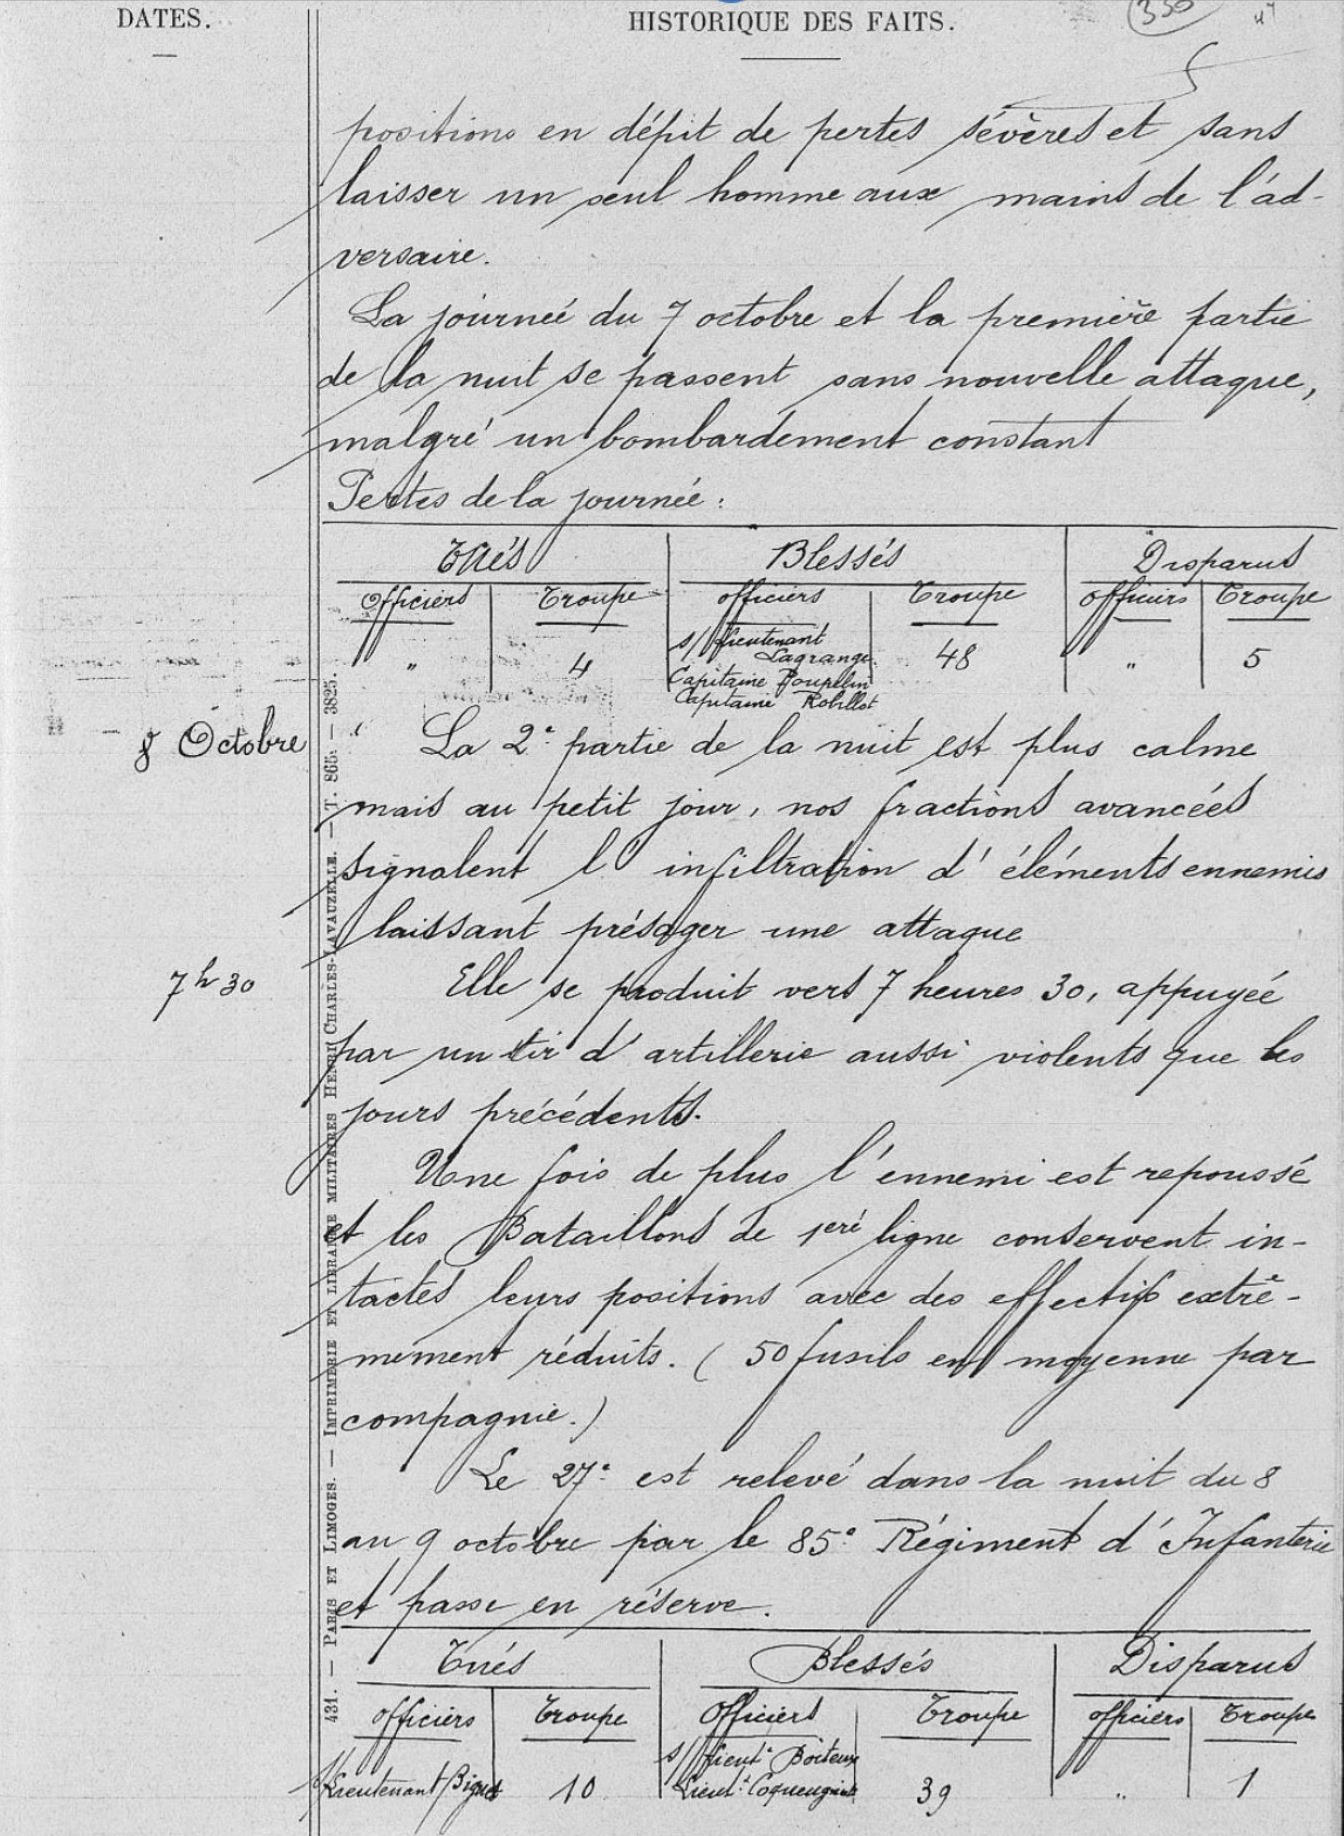 DATES.
HISTORIQUE DES FAITS.
positions en dépit de pertes sévères et sans
laisser un seul homme aux mains de l'ad-
versaire.
La journée du 7 octobre et la première partie
de la nuit se passent sans nouvelle attaque,
malgré un bombardement constant
Pertes de la journée :
Tués Blessés Disparus
Officiers Troupe officiers Troupe officiers Troupe
" 4 s/lieutenant 48 " 5
Lagrange
Capitaine Poupelin
Capitaine Robillot
8 Octobre
La 2e partie de la nuit est plus calme
mais au petit jour, nos fractions avancées
signalent l'infiltration d'éléments ennemis
laissant présager une attaque
7h30
Elle se produit vers 7 heures 30, appuyée
par un tir d'artillerie aussi violents que les
jours précédents.
Une fois de plus l'ennemi est repoussé
et les Bataillons de 1ère ligne conservent in-
tactes leurs positions avec des effectifs extrê-
mement réduits. ( 50 fusils en moyenne par
compagnie.)
Le 27e est relevé dans la nuit du 8
au 9 octobre par le 85e Régiment d'Infanterie
et passe en réserve.
Tués Blessés Disparus
officiers Troupe Officiers Troupe officiers Troupe
s/Lieutenant 10 s/lieutt Boiteux 39 " 1
Lieutt
431. — PARIS ET LIMOGES. — IMPRIMERIE ET LIBRAIRIE MILITAIRES HENRI CHARLES-LAVAUZELLE. — T. 865. — 3825.